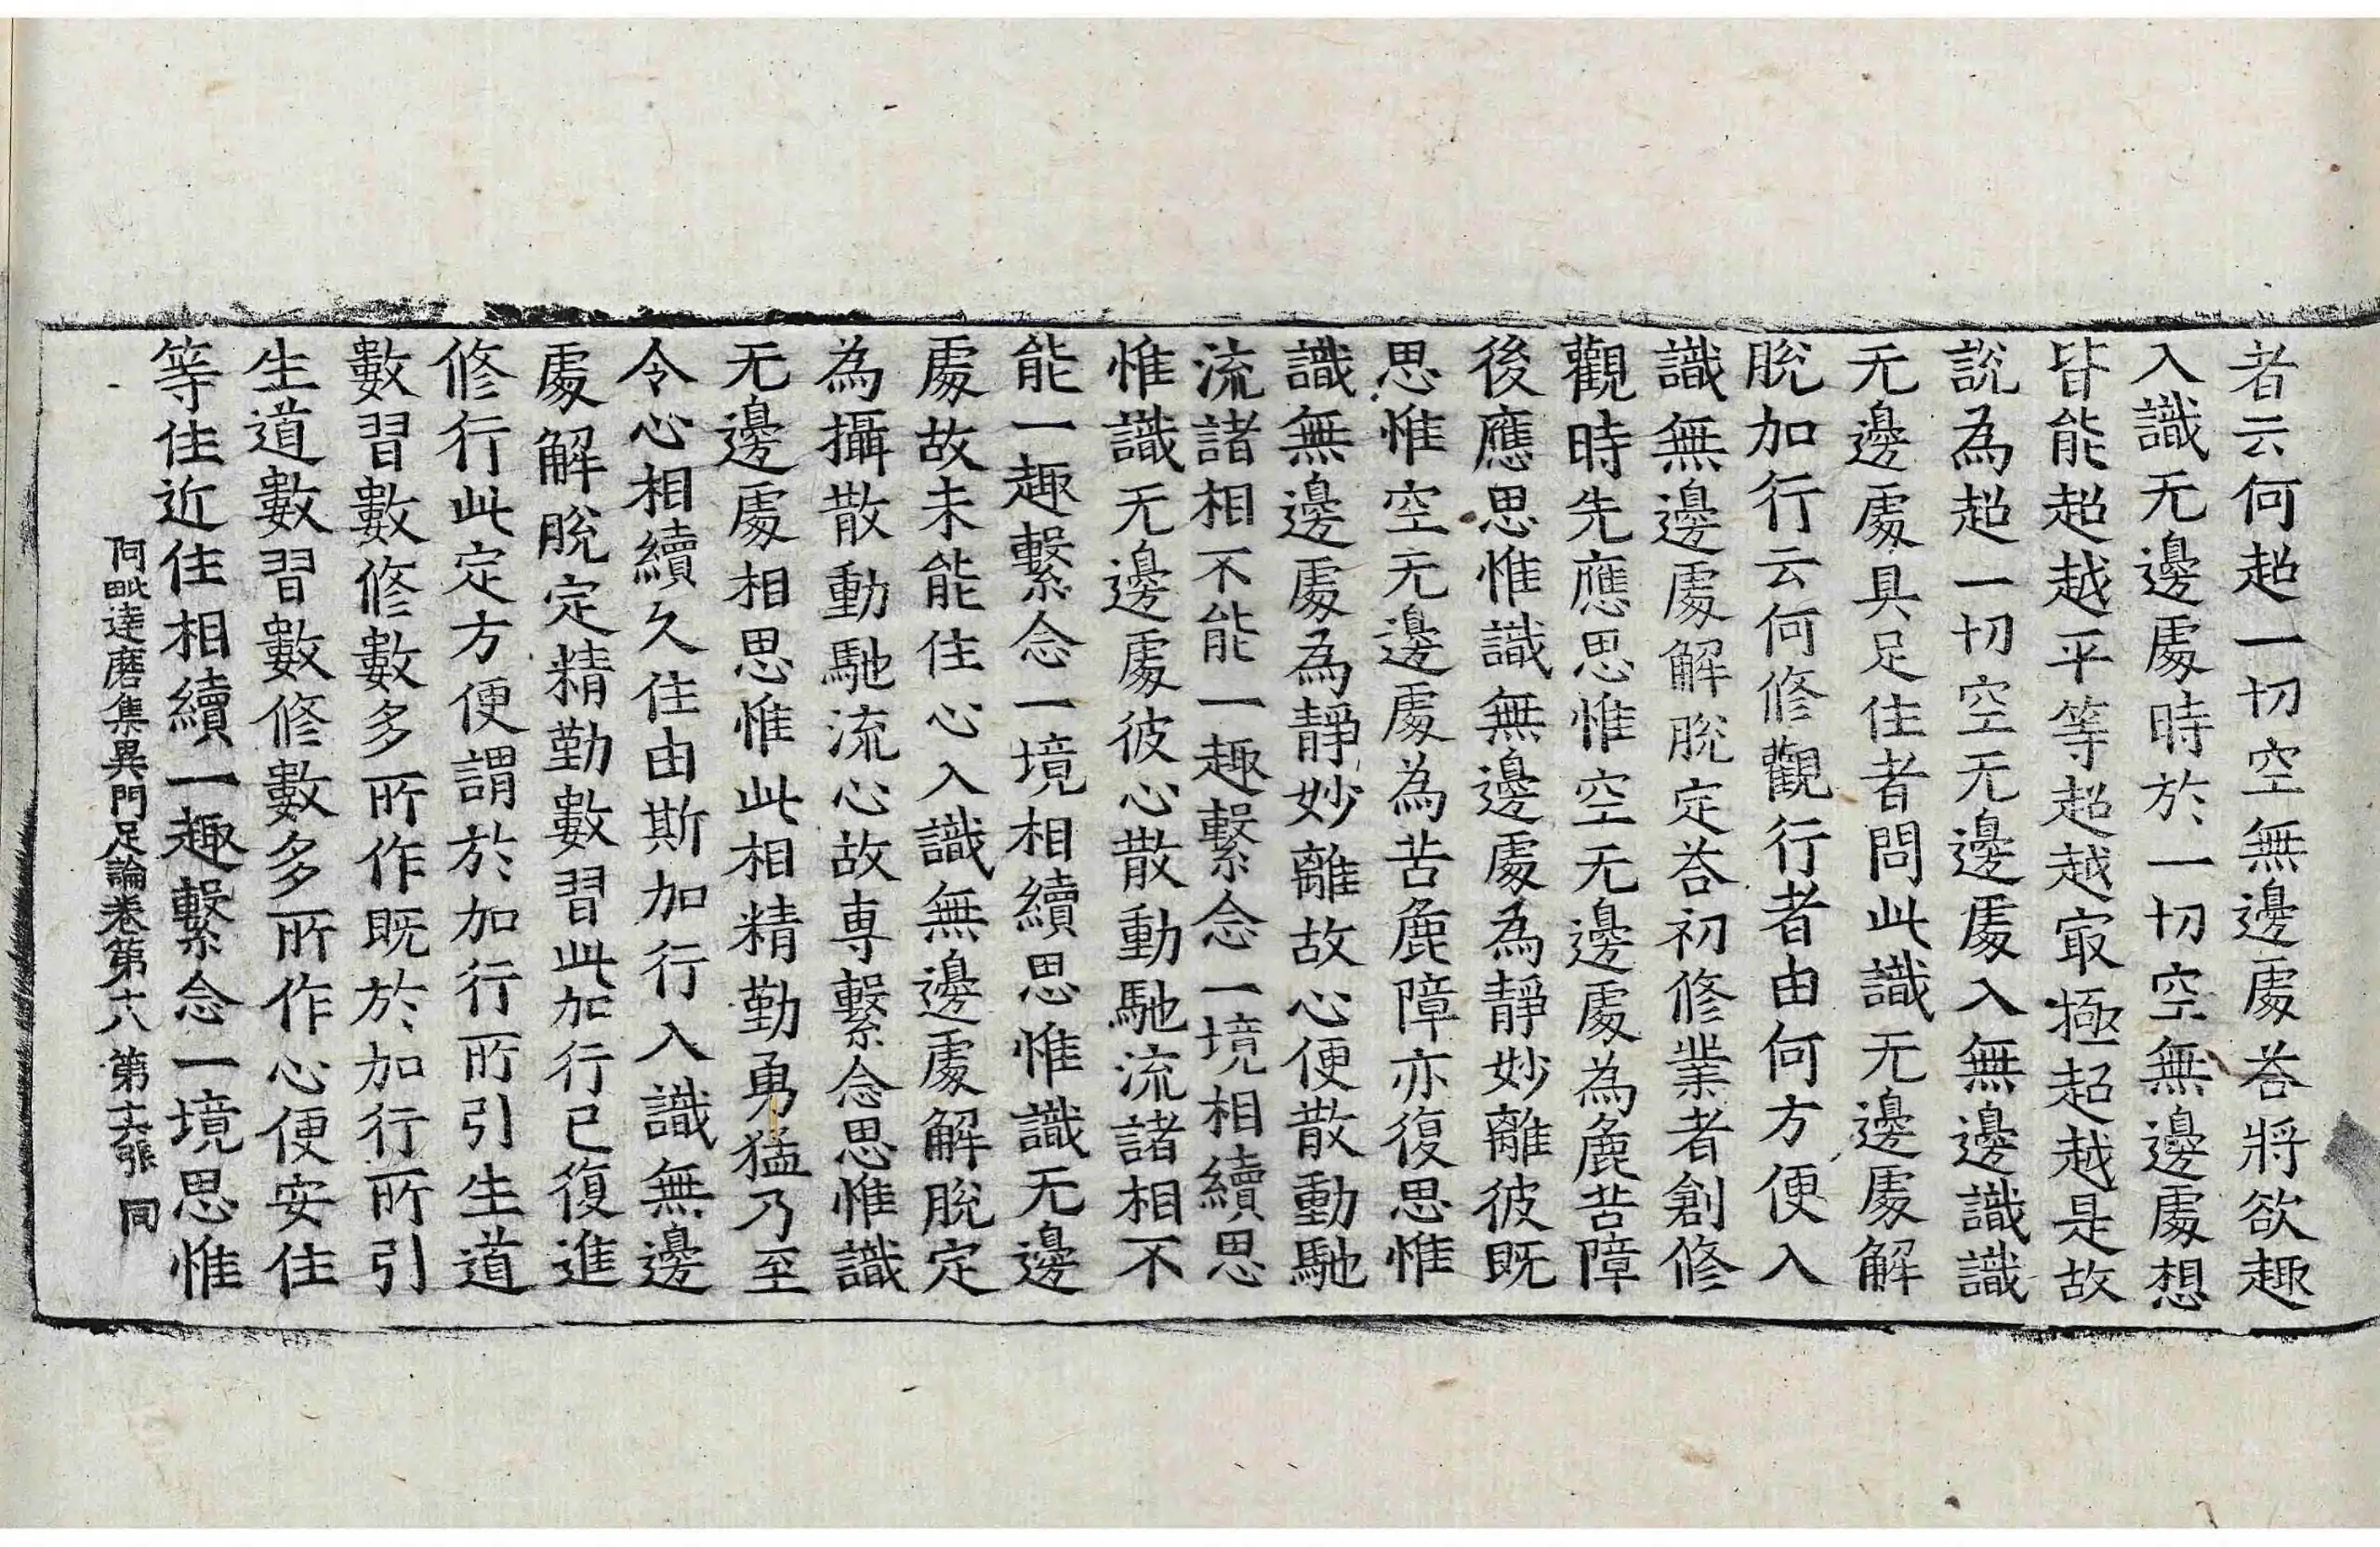 者云何超一切空無邊處荅將欲趣
入識无邊處時於一切空無邊處想
皆能超越平等超越㝡極超越是故
説為超一切空无邊處入無邊識識
无邊處具足住者問此識无邊處解
脫加行云何修觀行者由何方便入
識無邊處解脫定荅初修業者創修
觀時先應思惟空无邊處為麁苦障
後應思惟識無邊處為靜妙離彼既
思惟空无邊處為苦麁障亦復思惟
識無邊處為靜妙離故心便散動馳
流諸相不能一趣繫念一境相續思
惟識无邊處彼心散動馳流諸相不
能一趣繫念一境相續思惟識无邊
處故未能住心入識無邊處解脫定
為攝散動馳流心故專繫念思惟識
无邊處相思惟此相精勤勇猛乃至
令心相續久住由斯加行入識無邊
處解脫定精勤數習此加行已復進
修行此定方便謂於加行所引生道
數習數修數多所作既於加行所引
生道數習數修數多所作心便安住
等住近住相續一趣繫念一境思惟
阿毗達磨集異門足論卷第十八 第十六張 同